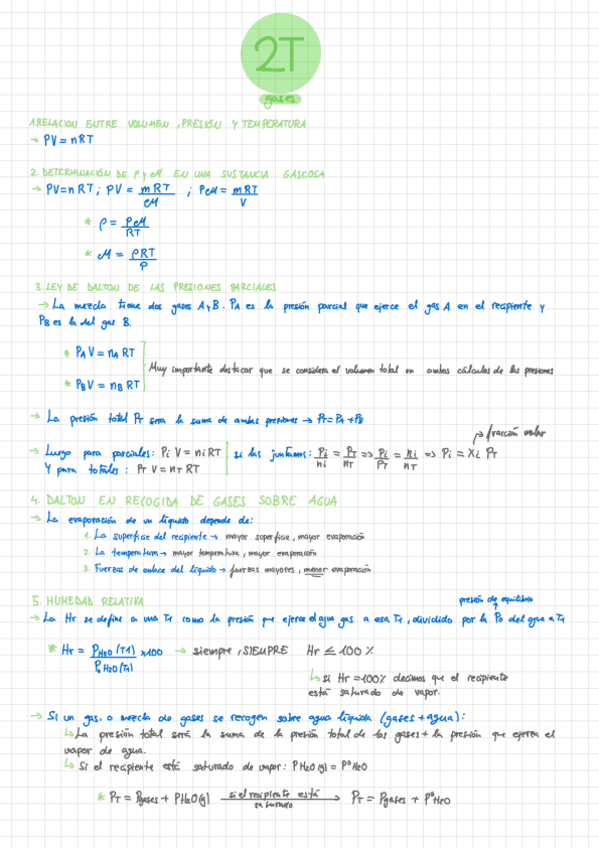 2T
gases
1.RELACION ENTRE VOLUMEN, PRESIÓN Y TEMPERATURA
→ PV = nRT
2. DETERMINACIÓN DE ρ y M EN UNA SUSTANCIA GASEOSA
→ PV=nRT ; PV = mRT/M ; PM = mRT/V
* ρ = PM/RT
* M = ρRT/P
3. LEY DE DALTON DE LAS PRESIONES PARCIALES
→ La mezcla tiene dos gases A y B. PA es la presión parcial que ejerce el gas A en el recipiente y
PB es la del gas B.
* PA V = nA RT
Muy importante destacar que se considera el volumen total en ambos cálculos de las presiones
* PB V = nB RT
→ La presión total PT será la suma de ambas presiones → PT = PA + PB
fracción molar
→ Luego para parciales: Pi V = ni RT si las juntamos: Pi/ni = PT/nT => Pi/PT = ni/nT => Pi = Xi PT
Y para totales: PT V = nT RT
4. DALTON EN RECOGIDA DE GASES SOBRE AGUA
→ La evaporación de un líquido depende de:
1. La superficie del recipiente → mayor superficie, mayor evaporación
2. La temperatura → mayor temperatura, mayor evaporación
3. Fuerzas de enlace del líquido → fuerzas mayores, menor evaporación
5. HUMEDAD RELATIVA
presión de equilibrio
→ La Hr se define a una T1 como la presión que ejerce el agua gas a esa T1, dividido por la P0 del agua a T1
* Hr = PH2O(T1)/P°H2O(T1) x100 → siempre, SIEMPRE Hr ≤ 100 %
↳ si Hr = 100% decimos que el recipiente
está saturado de vapor.
→ Si un gas, o mezcla de gases se recogen sobre agua líquida (gases + agua):
↳ La presión total será la suma de la presión total de los gases + la presión que ejerza el
vapor de agua.
↳ Si el recipiente está saturado de vapor: PH2O(g) = P°H2O
* PT = Pgases + PH2O(g) si el recipiente está saturado → PT = Pgases + P°H2O